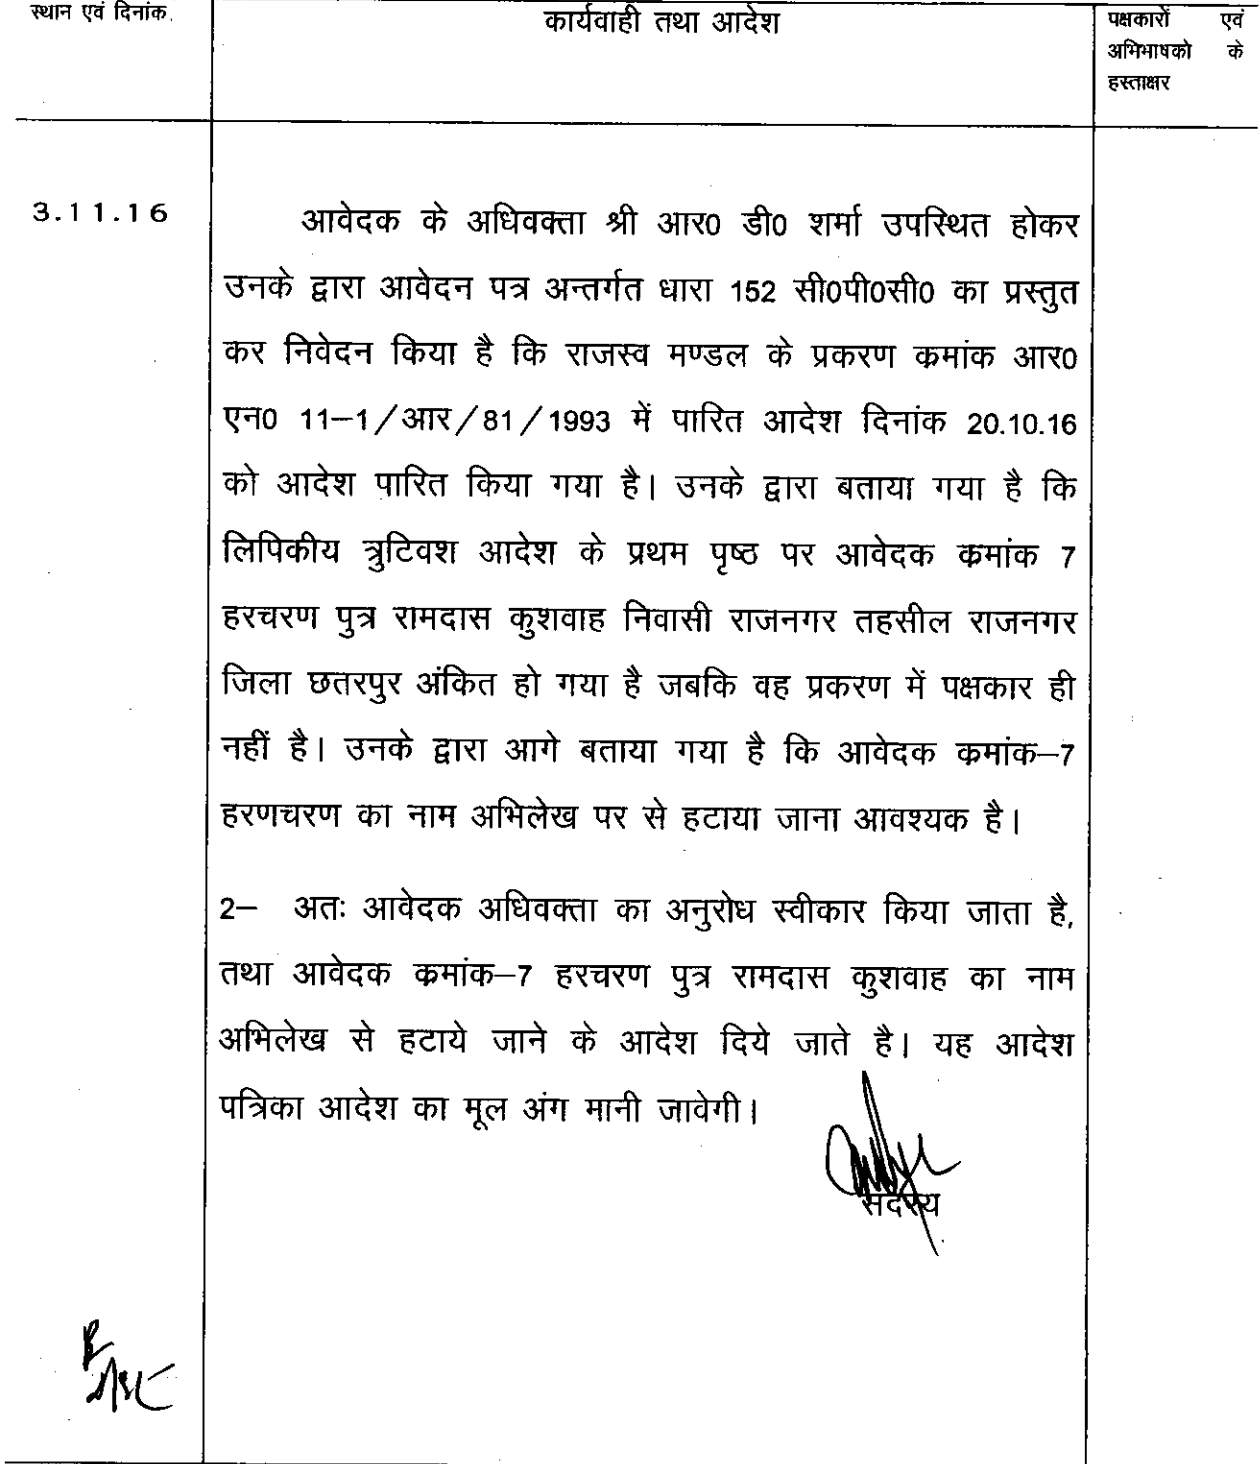 स्थान एवं दिनांक
कार्यवाही तथा आदेश
पक्षकारों एवं
अभिभाषको के
हस्ताक्षर
3.11.16
आवेदक के अधिवक्ता श्री आर0 डी0 शर्मा उपस्थित होकर
उनके द्वारा आवेदन पत्र अन्तर्गत धारा 152 सी0पी0सी0 का प्रस्तुत
कर निवेदन किया है कि राजस्व मण्डल के प्रकरण कमांक आर0
एन0 11–1/आर/81/1993 में पारित आदेश दिनांक 20.10.16
को आदेश पारित किया गया है। उनके द्वारा बताया गया है कि
लिपिकीय त्रुटिवश आदेश के प्रथम पृष्ठ पर आवेदक कमांक 7
हरचरण पुत्र रामदास कुशवाह निवासी राजनगर तहसील राजनगर
जिला छतरपुर अंकित हो गया है जबकि वह प्रकरण में पक्षकार ही
नहीं है। उनके द्वारा आगे बताया गया है कि आवेदक कमांक–7
हरणचरण का नाम अभिलेख पर से हटाया जाना आवश्यक है।
2– अतः आवेदक अधिवक्ता का अनुरोध स्वीकार किया जाता है,
तथा आवेदक कमांक–7 हरचरण पुत्र रामदास कुशवाह का नाम
अभिलेख से हटाये जाने के आदेश दिये जाते है। यह आदेश
पत्रिका आदेश का मूल अंग मानी जावेगी।
सदस्य